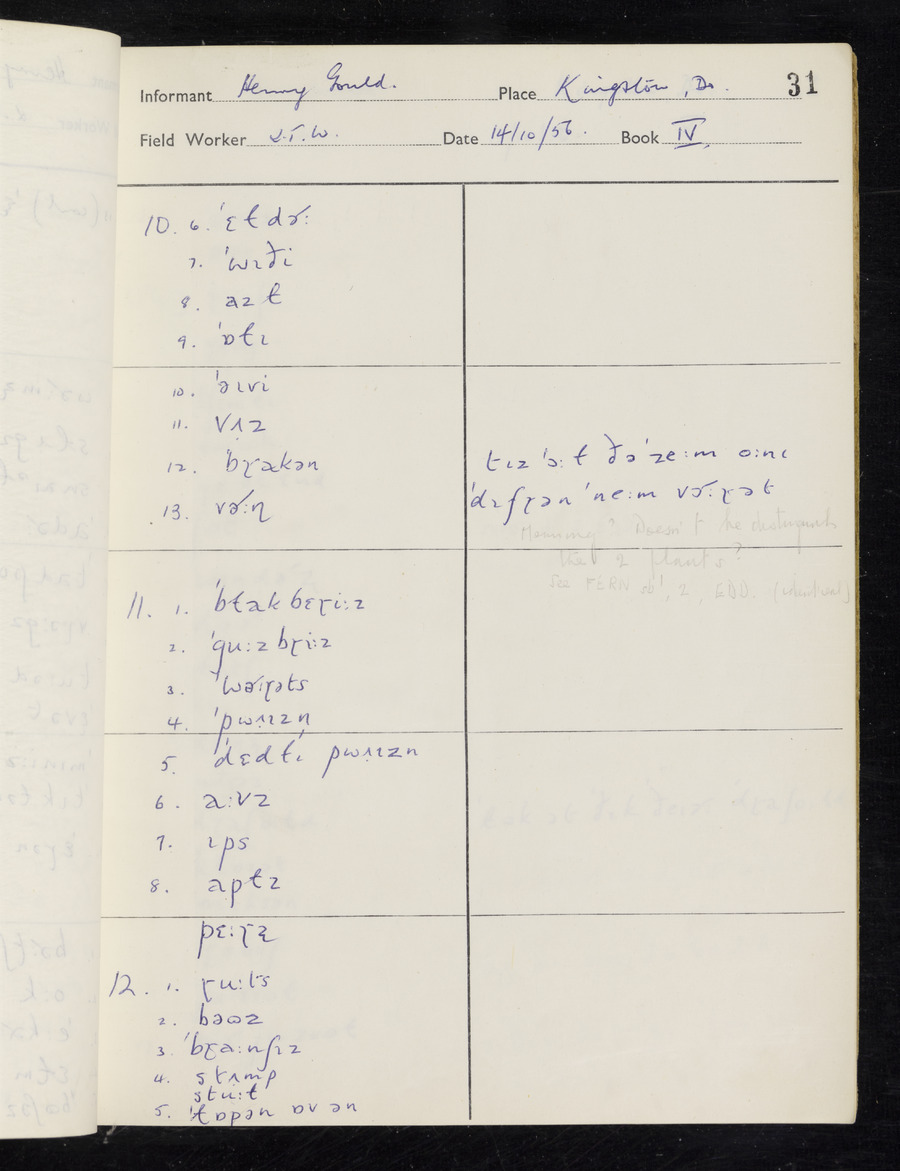 Informant Henry Gould. Place Kingston, Do. 31
Field Worker J.T.W. Date 14/10/56. Book IV.
10. 6. ˈɛɫdəʳː
7. ˈwɪði
8. aːɫ
9. ˈɒɫɪ
10. ˈəɪvi
11. vʌz
12. ˈbɽakən tɪz ˈɔːɫ ðə ˈzeːm oːnɪ
13. vəʳːɳ ˈdɪfɽən ˈneːm vəʳːɽəɫ
Meaning? Doesn't he distinguish
the 2 plants?
See FERN sb', 2, EDD. (identical)
11. 1. ˈbɫakbɛɽiːz
2. ˈguːzbɽiːz
3. ˈwəʳːɽəts
4. ˈpwʌɪzn̩
5. ˈdɛdɫi pwʌɪzn
6. aːvz
7. ɪps
8. apɫz
pɛːɽz̩
12. 1. ɽuːts
2. bəʊz
3. ˈbɽaːnʃɪz
4. stʌmp
stuːɫ
5. ˈɫɒpən ɒv ən